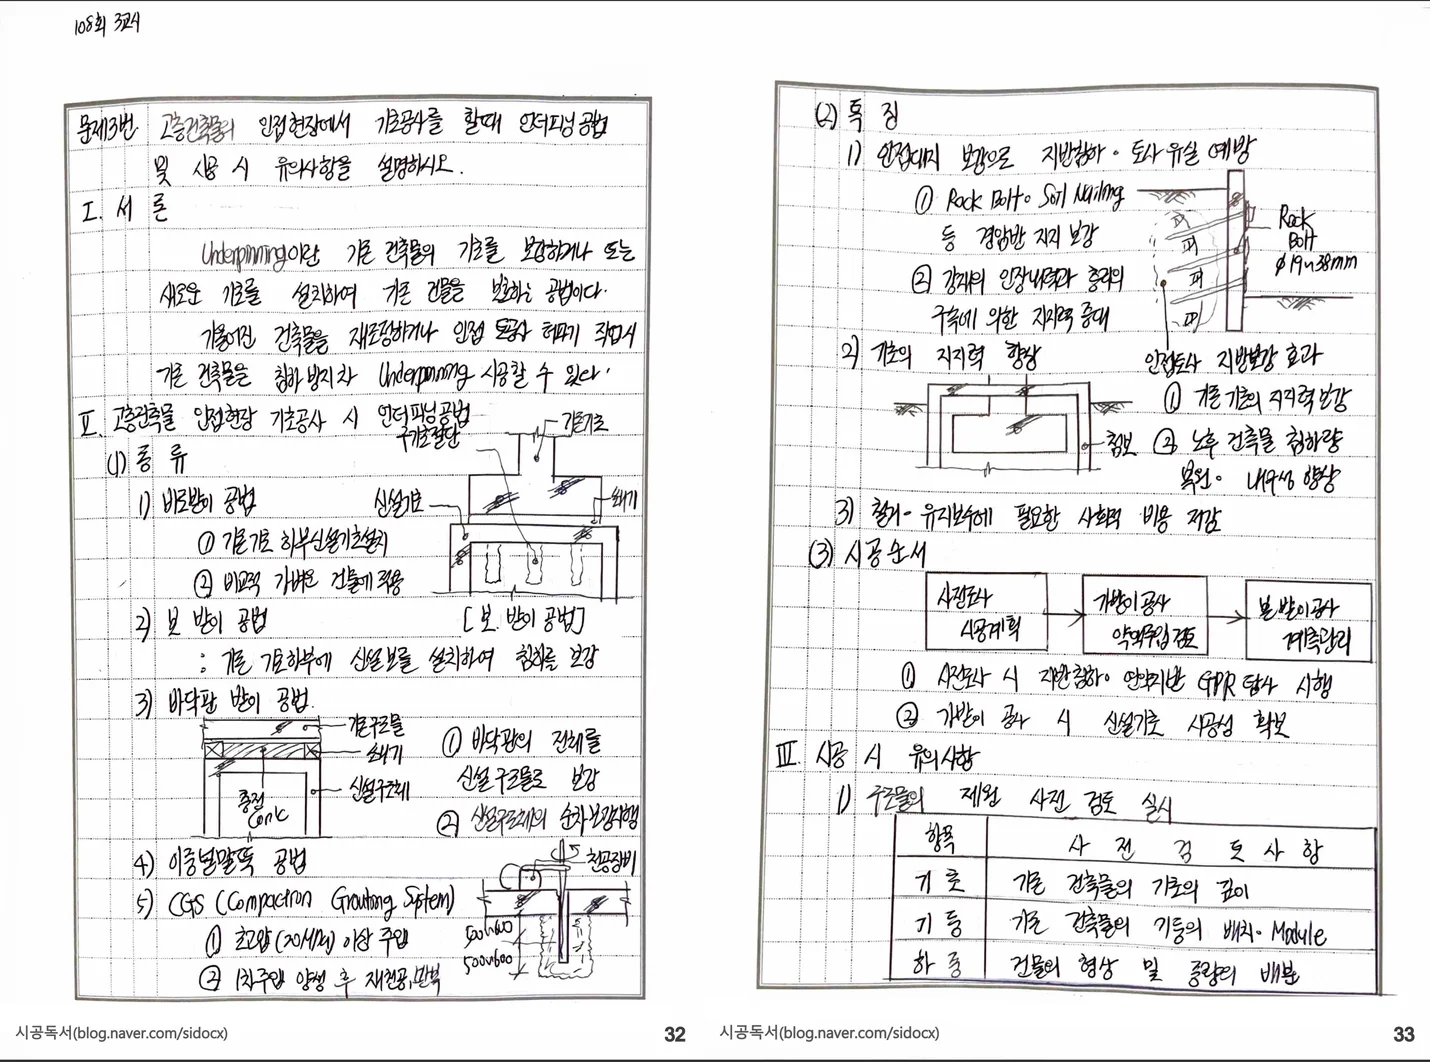 108회 3교시
문제3번. 고층건축물의 인접현장에서 기초공사를 할때 언더피닝공법
및 시공 시 유의사항을 설명하시오.
I. 서 론
Underpinning이란 기존 건축물의 기초를 보강하거나 또는
새로운 기초를 설치하여 기존 건물을 보호하는 공법이다.
기울어진 건축물을 재조정하거나 인접 토공사 터파기 작업시
기존 건축물을 침하방지차 Underpinning 시공할 수 있다.
II. 고층건축물 인접현장 기초공사 시 언더피닝공법
(1) 종 류
구기초절단
기존기초
1) 바로받이 공법
신설기초
쐐기
① 기존기초 하부신설기초설치
② 비교적 가벼운 건물에 적용
2) 보 받이 공법
[보.받이 공법]
: 기존 기초하부에 신설보를 설치하여 침하를 보강
3) 바닥판 받이 공법.
기존구조물
쐐기
신설구조체
충전
Conc
① 바닥판의 전체를
신설구조물로 보강
② 신설구조체의 순차보강시행
4) 이중널말뚝 공법
천공장비
5) CGS (Compaction Grouting System)
① 초고압 이상 주입
② 1차주입 양생 후 재천공, 반복
500~600
500~600
시공독서(blog.naver.com/sidocx)
32
(2) 특 징
1) 인접대지 보강으로 지반침하·토사유실 예방
① Rock Bolt·Soil Nailing
등 경암반 지지 보강
② 강재의 인장내력과 중력의
구속에 의한 지지력 증대
Rock
Bolt
φ19~38mm
인접토사 지반보강 효과
2) 기초의 지지력 향상
첨보
① 기존기초의 지지력보강
② 노후 건축물 침하량
복원· 내구성 향상
3) 철거·유지보수에 필요한 사회적 비용 저감
(3) 시공순서
사전조사
시공계획
가받이공사
약액주입검토
본받이공사
계측관리
① 사전조사 시 지반침하·연약지반 GPR탐사 시행
② 가받이 공사 시 신설기초 시공성 확보
III. 시공 시 유의사항
1) 구조물의 제원 사전 검토 실시
항목 사 전 검 토 사 항
기 초 기존 건축물의 기초의 깊이
기 둥 기존 건축물의 기둥의 배치·Module
하 중 건물의 형상 및 중량의 배분
시공독서(blog.naver.com/sidocx)
33